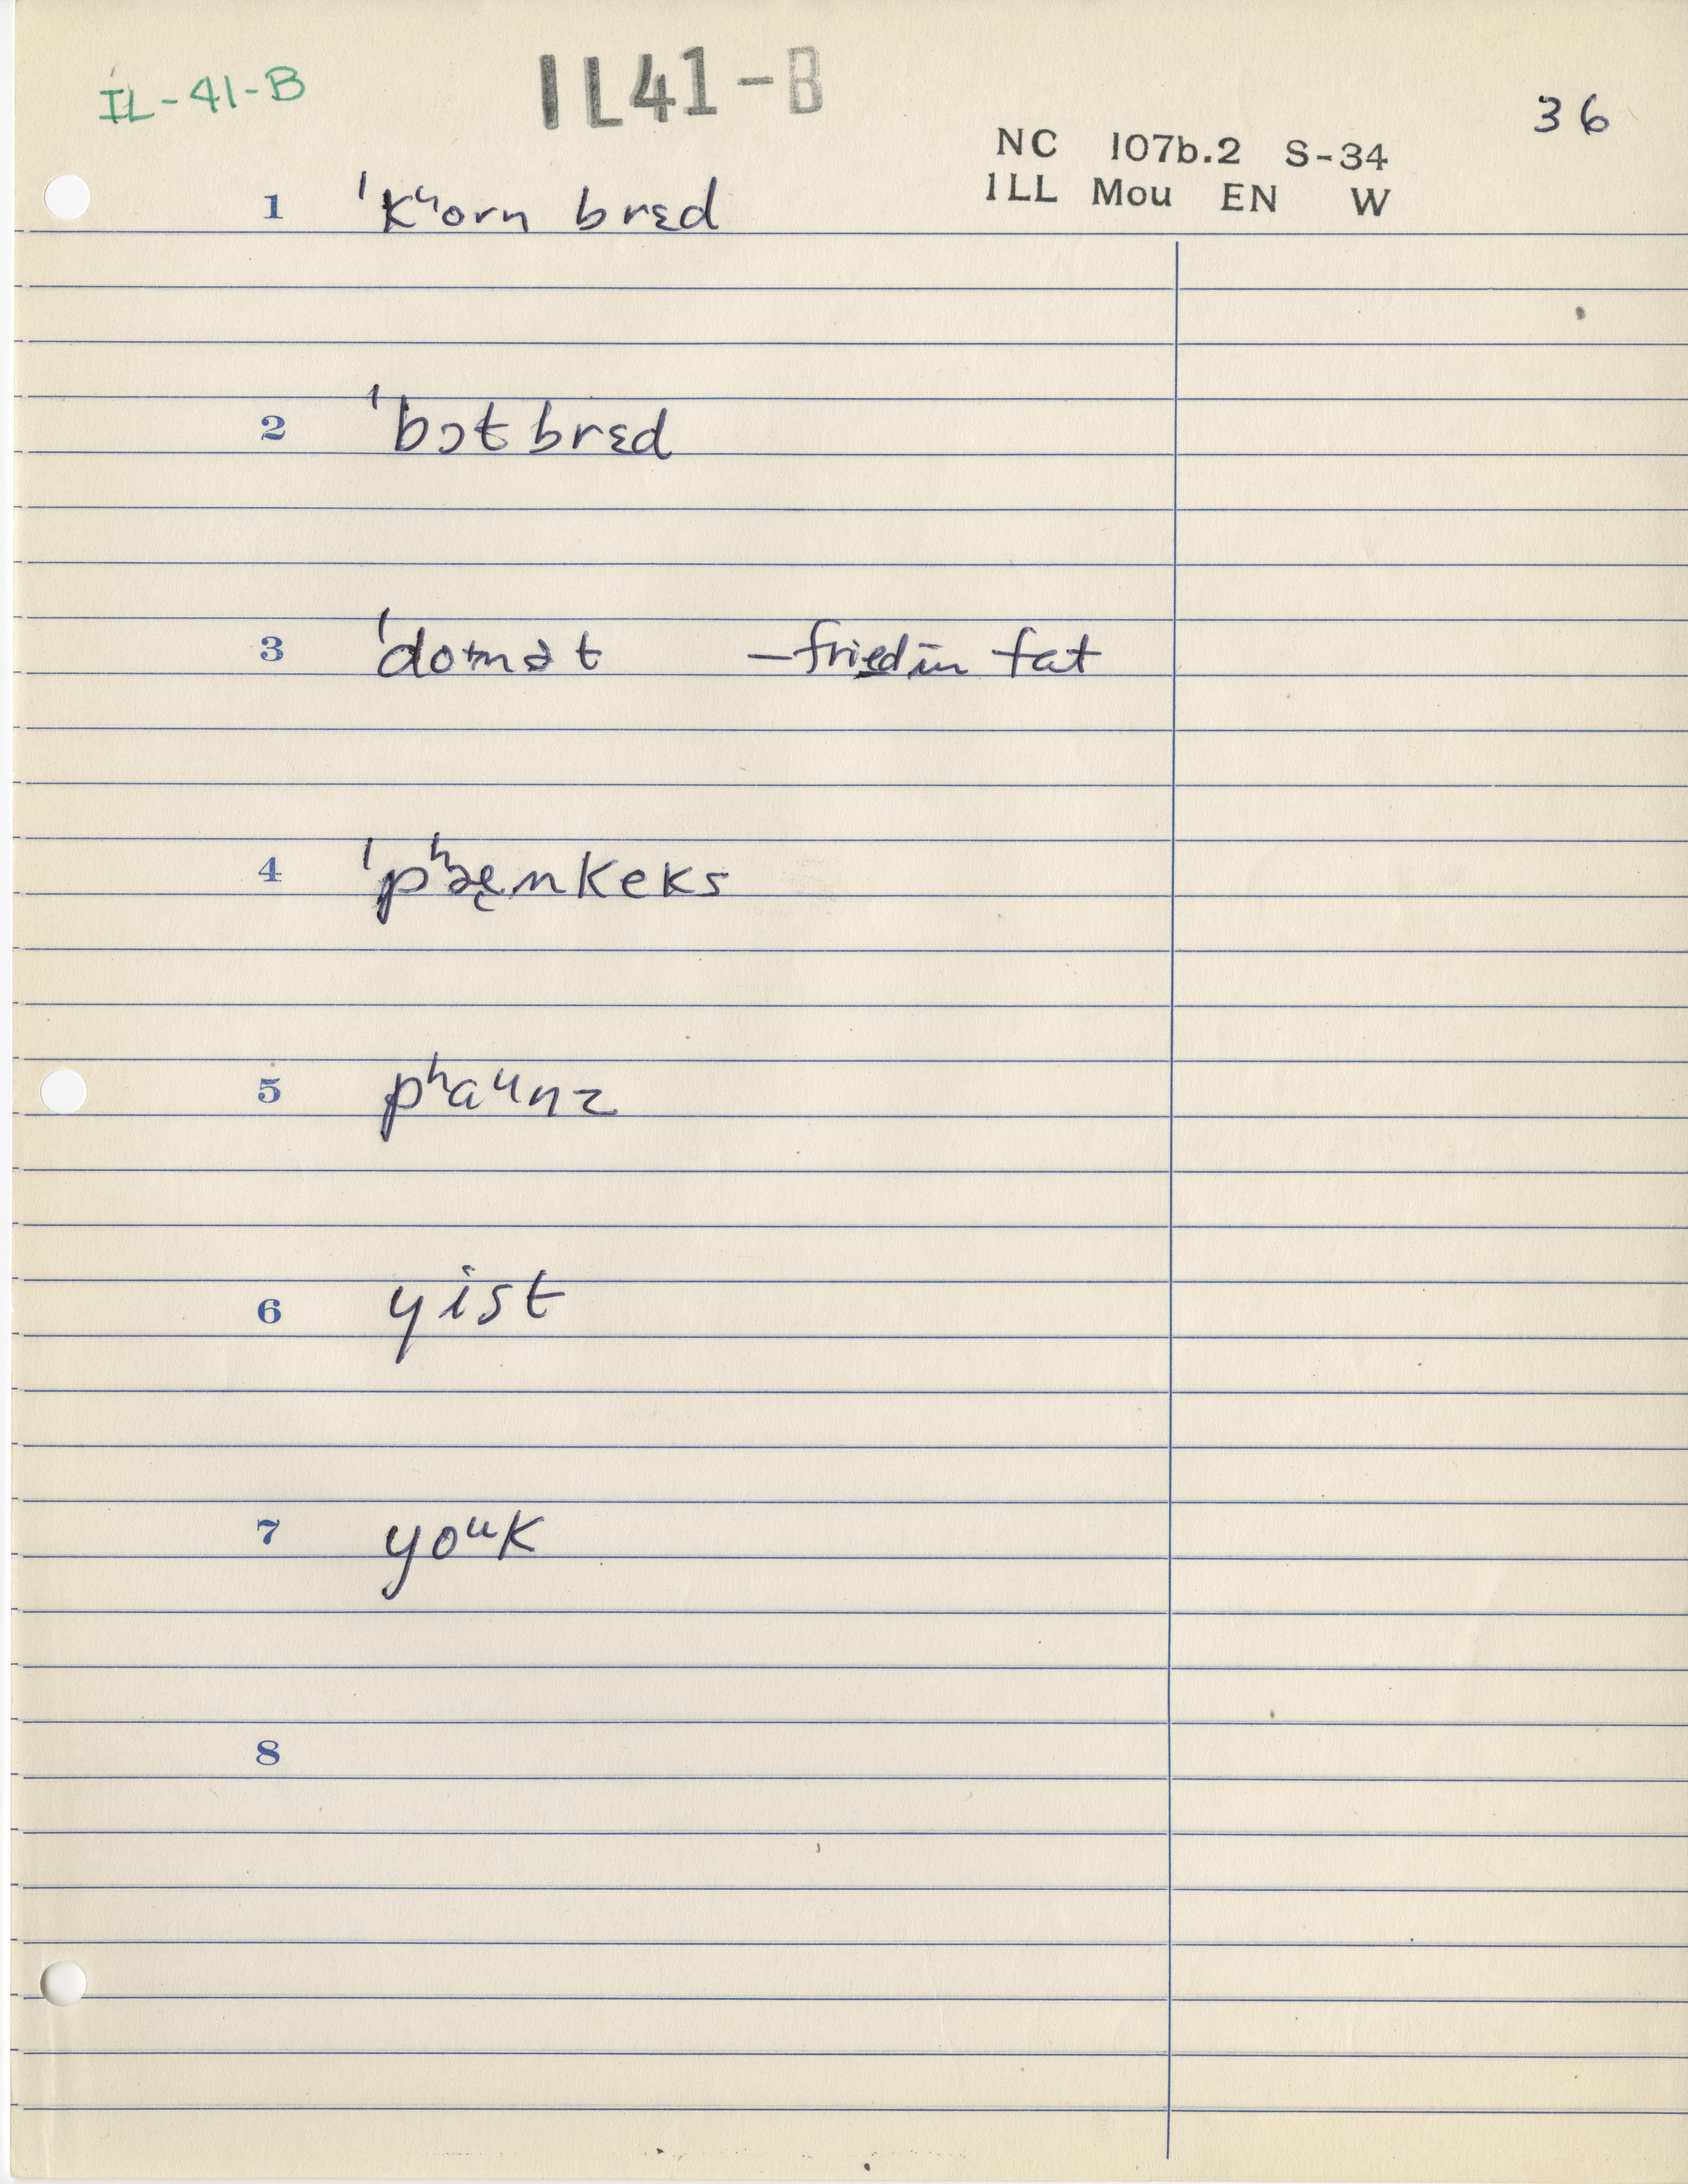 IL-41-B
IL41-B
36
NC 107b.2 S-34
ILL Mou EN W
1 ˈkʰorn brɛd
2 ˈbɔt brɛd
3 –fried in fat
4 ˈpʰæ̨nkeks
5 pʰaᶸnz
6 yist
7 yoᵘk
8